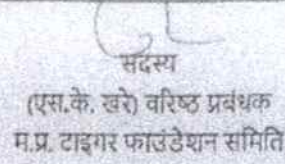 सदस्य
(एस.के. खरे) वरिष्ठ प्रबंधक
म.प्र. टाइगर फाउंडेशन समिति